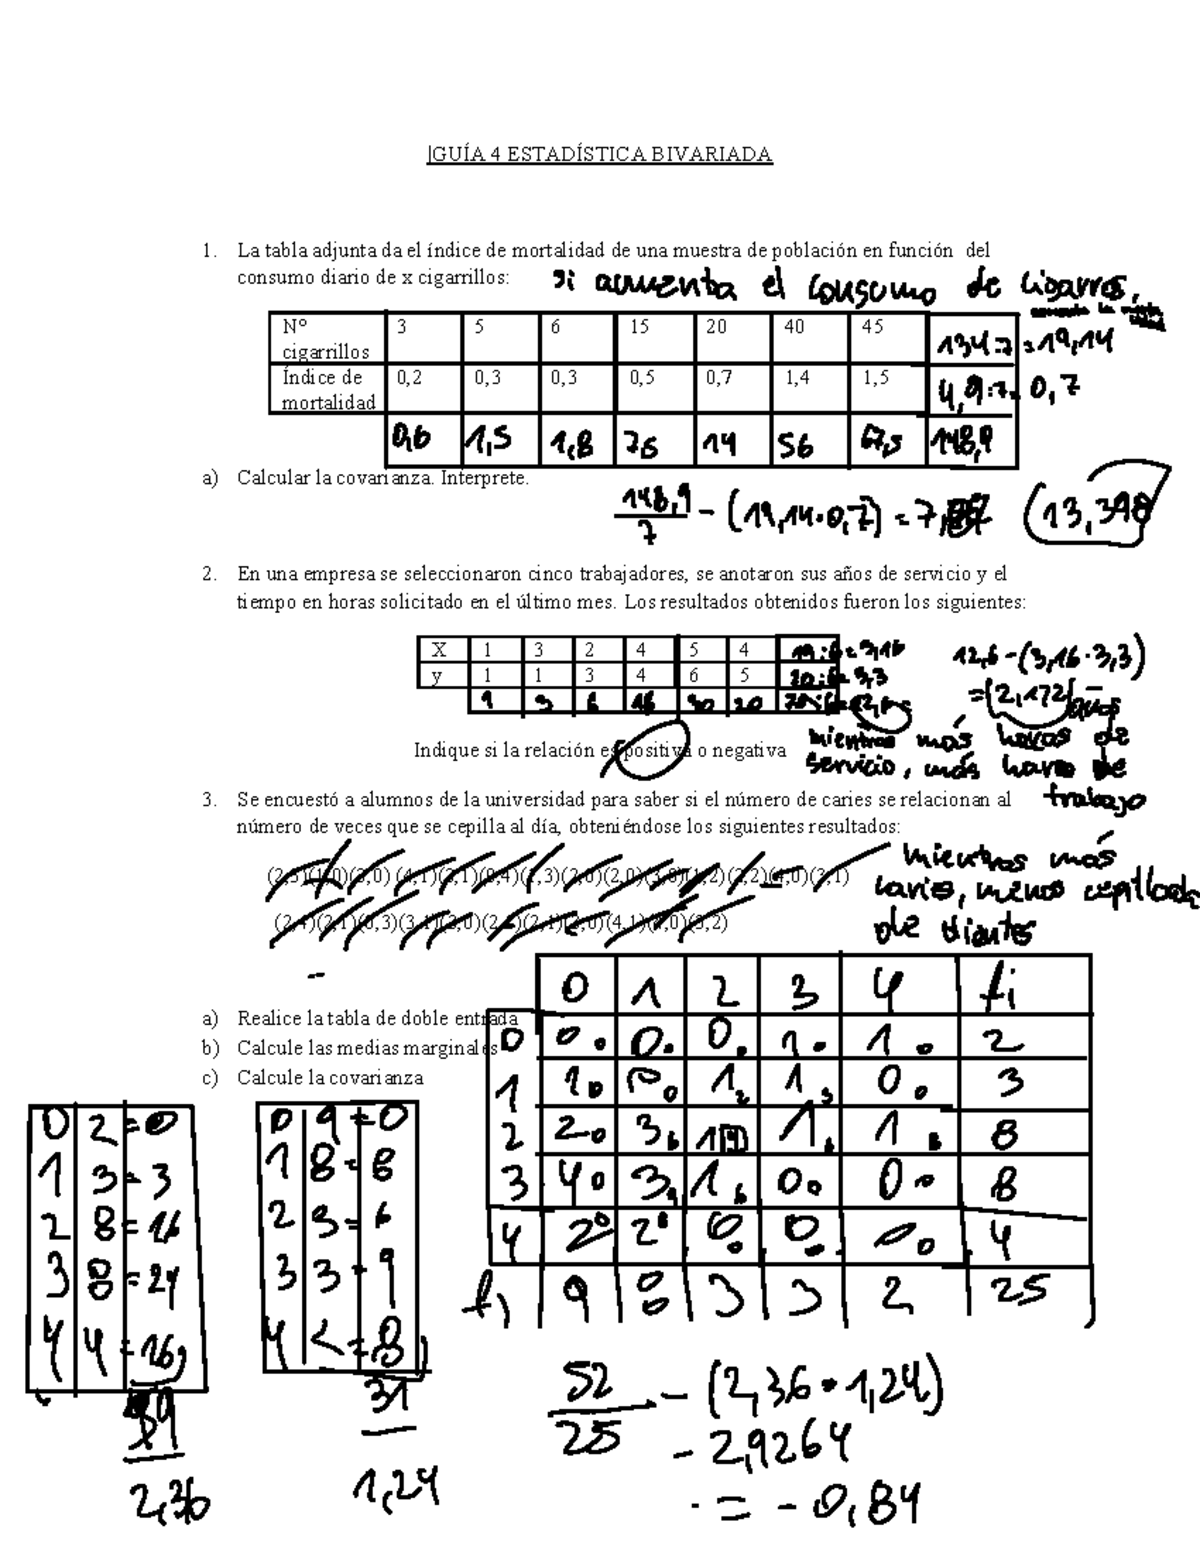 |GUÍA 4 ESTADÍSTICA BIVARIADA
1. La tabla adjunta da el índice de mortalidad de una muestra de población en función del
consumo diario de x cigarrillos:
si aumenta el consumo de cigarros,
aumenta la
N° cigarrillos 3 5 6 15 20 40 45 134:7=19,14
Índice de mortalidad 0,2 0,3 0,3 0,5 0,7 1,4 1,5 4,9:7= 0,7
0,6 1,5 1,8 7,5 14 56 67,5 148,9
a) Calcular la covarianza. Interprete.
148,9
7
- (19,14·0,7) = 7, (13,398
2. En una empresa se seleccionaron cinco trabajadores, se anotaron sus años de servicio y el
tiempo en horas solicitado en el último mes. Los resultados obtenidos fueron los siguientes:
X 1 3 2 4 5 4 19:6=3,16
y 1 1 3 4 6 5 20:6=3,3
1 3 6 16 30 20
12,6-(3,16·3,3)
=(2,172)
Indique si la relación es positiva o negativa
mientras más horas de
servicio, más de
trabajo
3. Se encuestó a alumnos de la universidad para saber si el número de caries se relacionan al
número de veces que se cepilla al día, obteniéndose los siguientes resultados:
(3,0) (4,1)
(4,0)(3,1)
mientras más
caries, menos cepillada
de dientes
(4,1) (3,2)
0 1 2 3 4 fi
a) Realice la tabla de doble entrada
b) Calcule las medias marginales
c) Calcule la covarianza
0 0 0 0 1 1 2
1 1 0 1 1 0 3
2 2 3 1 1 1 8
3 4 3 1 0 0 8
4 2 2 0 0 0 4
9 8 3 3 2 25
0 2 = 0
1 3 = 3
2 8 = 16
3 8 = 24
4 4 = 16
2,36
0 9 = 0
1 8 = 8
2 3 = 6
3 3 = 9
4 = 8
31
1,24
52
25
- (2,36·1,24)
- 2,9264
= - 0,84